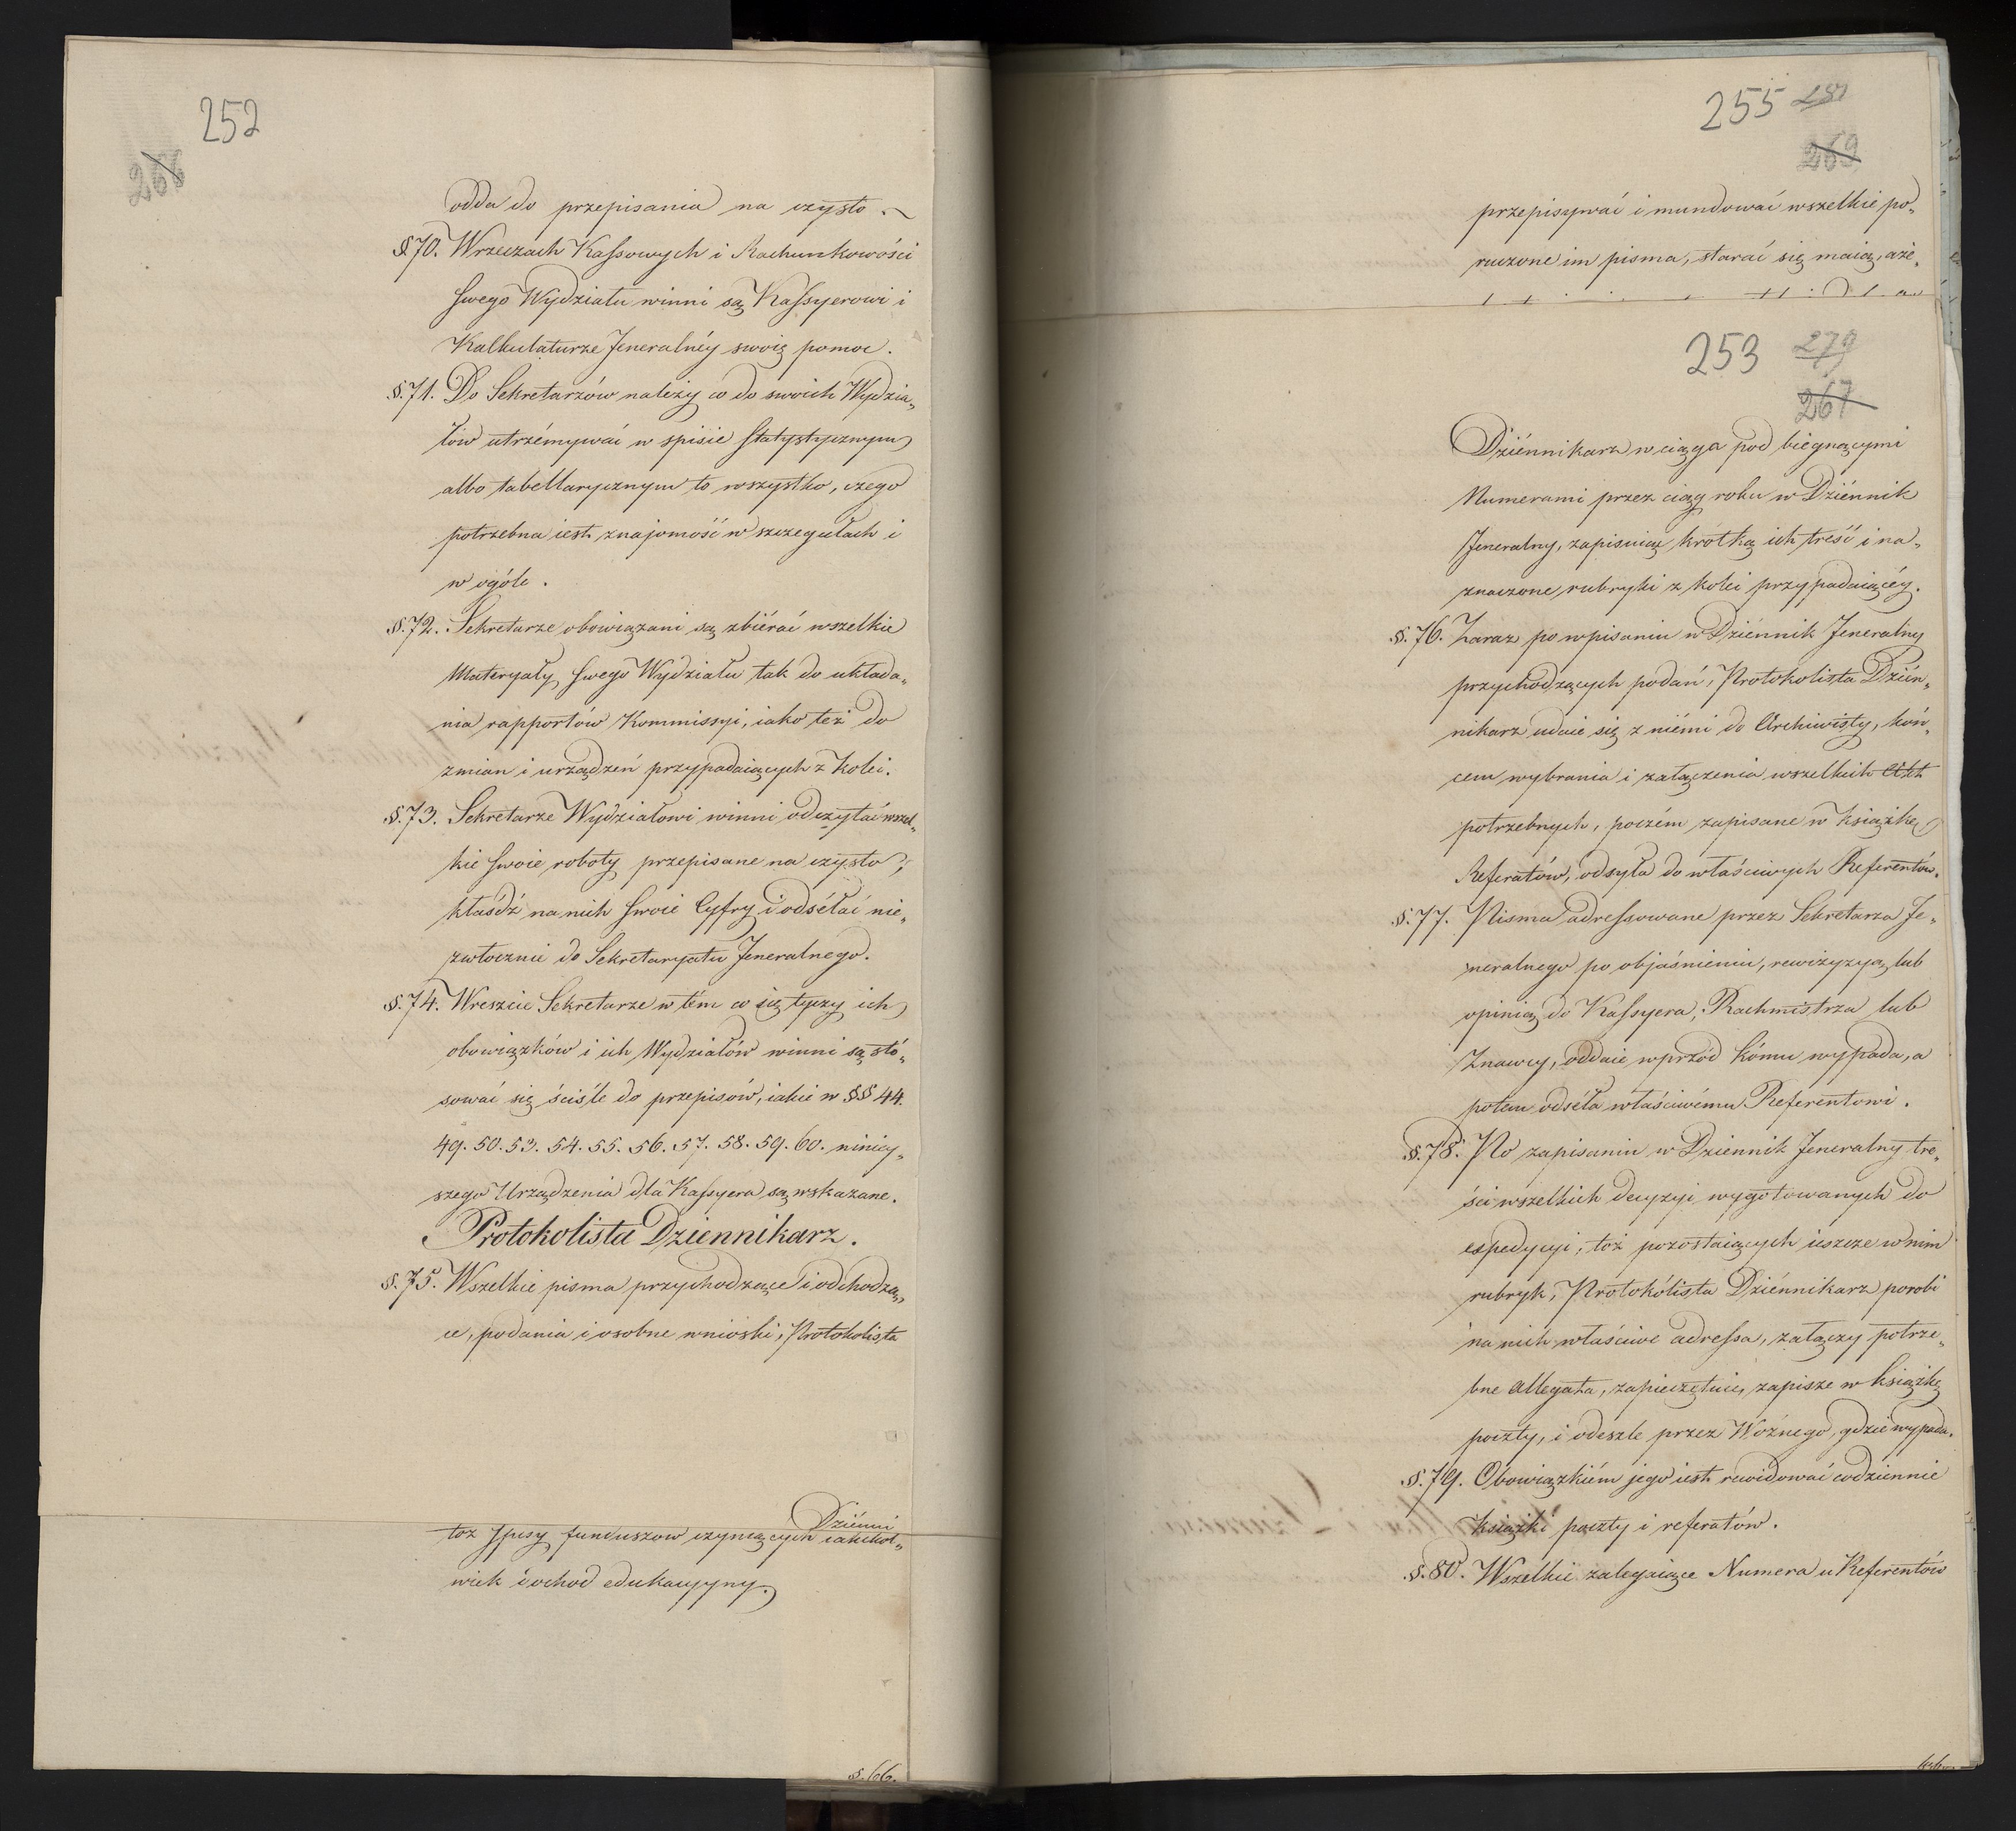 252
266
odda do przepisania na czysto.
§70. W rzeczach Kassowych i Rachunkowości
swego Wydziału winni są Kassyerowi i
Kalkulaturze Jeneralnéy swoią pomoc.
§.71. Do Sekretarzów należy co do swoich Wydzia„
łów utrzémywać w spisie statystycznym
albo tabellarycznym to wszystko, czego
potrzebna iest znajomość w szczegułach i
w ogóle.
§.72. Sekretarze obowiązani są zbiérać wszelkie
Materyały swego Wydziału tak do układa„
nia rapportów Kommissyi, iako też do
zmian i urządzeń przypadaiących z kolei.
§.73. Sekretarze Wydziałowi winni odczytać wszel„
kie swoie roboty przepisane na czysto,
kłaśdź na nich swoie Cyfry i odséłać nie„
zwłocznie do Sekretaryatu Jeneralnego.
§.74. Wreszcie Sekretarze w tém co się tyczy ich
obowiązków i ich Wydziałów winni są stó„
sować się ściśle do przepisów, iakie w §§ 44.
49. 50. 53. 54. 55. 56. 57. 58. 59. 60. niniey„
szego Urządzenia dla Kassyera są wskazane.
Protokolista Dziennikarz.
§.75. Wszelkie pisma przychodzące i odchodzą„
ce, podania i osobne wnioski, Protokolista
Dziénni
toż Jssusy funduszow czyniących iakikol„
wiek dochod edukacyyny.
§.66.
255 281
269
przepisywać i mundować wszelkie po„
ruczone im pisma, starać się maią, aże„
253 279
267
Dziénnikarz wciąga pod biegnącymi
Numerami przez ciąg roku w Dziénnik
Jeneralny, zapisuiąc krótką ich treść i na„
znaczone rubryki z kolei przypadaiącéy.
§.76. Zaraz po wpisaniu w Dziénnik Jeneralny
przychodzących podań, Protokolista Dzién„
nikarz udaie się z niémi do Archiwisty, koń„
cem wybrania i załączenia wszelkich Akt
potrzebnych, poczém zapisane w książkę
Referatów, odsyła do właściwych Referentów.
§.77. Pisma adressowane przez Sekretarza Je„
neralnego po objaśnieniu, rewizyzyą, lub
opinią do Kassyera, Rachmistrza lub
Znawcy, oddaie wprzód kómu wypada, a
potem odséła właściwému Referentowi.
§.78. Po zapisaniu w Dziennik Jeneralny tre„
ści wszelkich decyzyi wygotowanych do
expedycyi, toż pozostaiących ieszcze w nim
rubryk, Protokólista Dziénnikarz porobi
na nich właściwe adressa, załączy potrze„
bne allegata, zapieczętuie, zapisze w książkę
poczty, i odeszle przez Woźnego, gdzie wypada.
§.79. Obowiązkiém jego iest rewidować codziennie
książki poczty i referatów.
§.80. Wszélkie zalegaiące Numera u Referentów